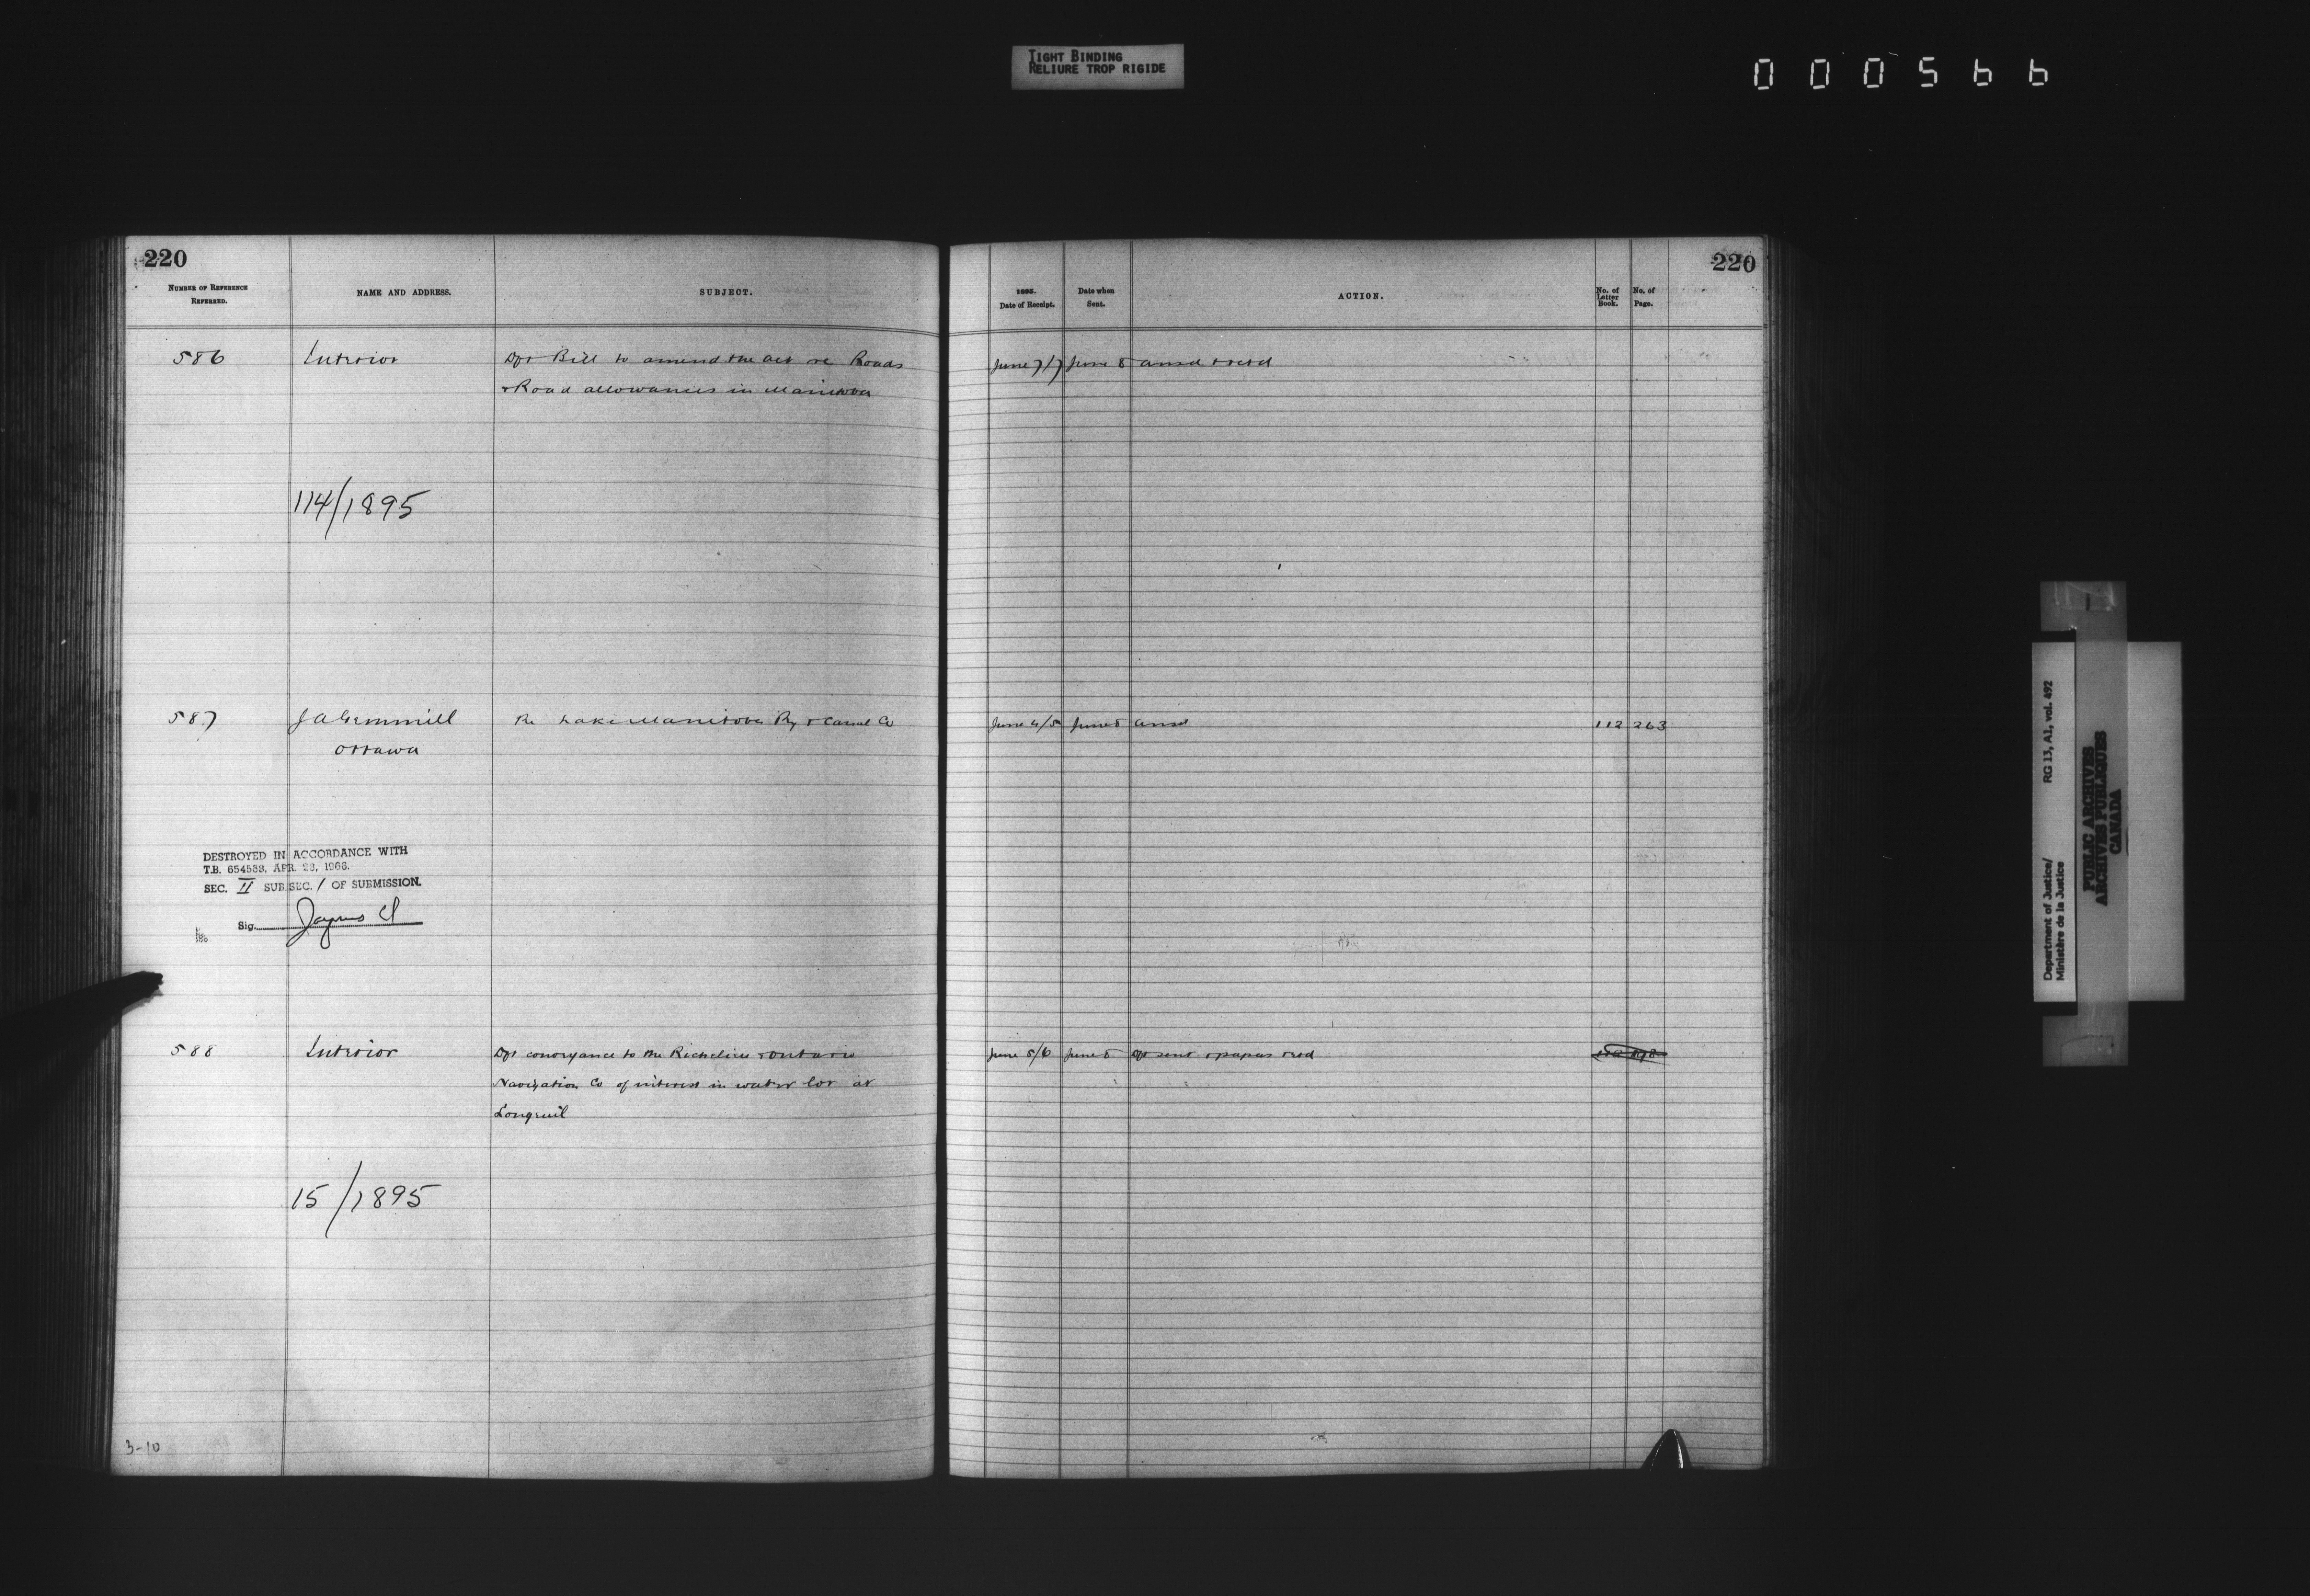 TIGHT BINDING
RELIURE TROP RIGIDE
000566
220
220
NUMBER OF REFERENCE REFERRED.
NAME AND ADDRESS.
SUBJECT.
1895. Date of Receipt.
Date when Sent.
ACTION.
No. of Letter Book.
No. of Page.
586 Interior Dft Bill to amend the act re Roads June 7/7 June 8 ansd & retd
& Road allowances in Manitoba
114/1895
587 J A Gemmill Re Lake Manitoba Ry & Canal Co June 4/5 June 5 ansd 112 263
Ottawa
DESTROYED IN ACCORDANCE WITH
T.B. 654553, APR. 23, 1966.
SEC. II SUB.SEC. 1 OF SUBMISSION.
Sig.
588 Interior Dft conveyance to the Richelieu & Ontario June 5/6 June 8 dft sent & papers retd
Navigation Co of interest in water lot at
Longueuil
15/1895
3-10
Department of Justice/
Ministère de la Justice
RG 13, A1, vol. 492
PUBLIC ARCHIVES
ARCHIVES PUBLIQUES
CANADA